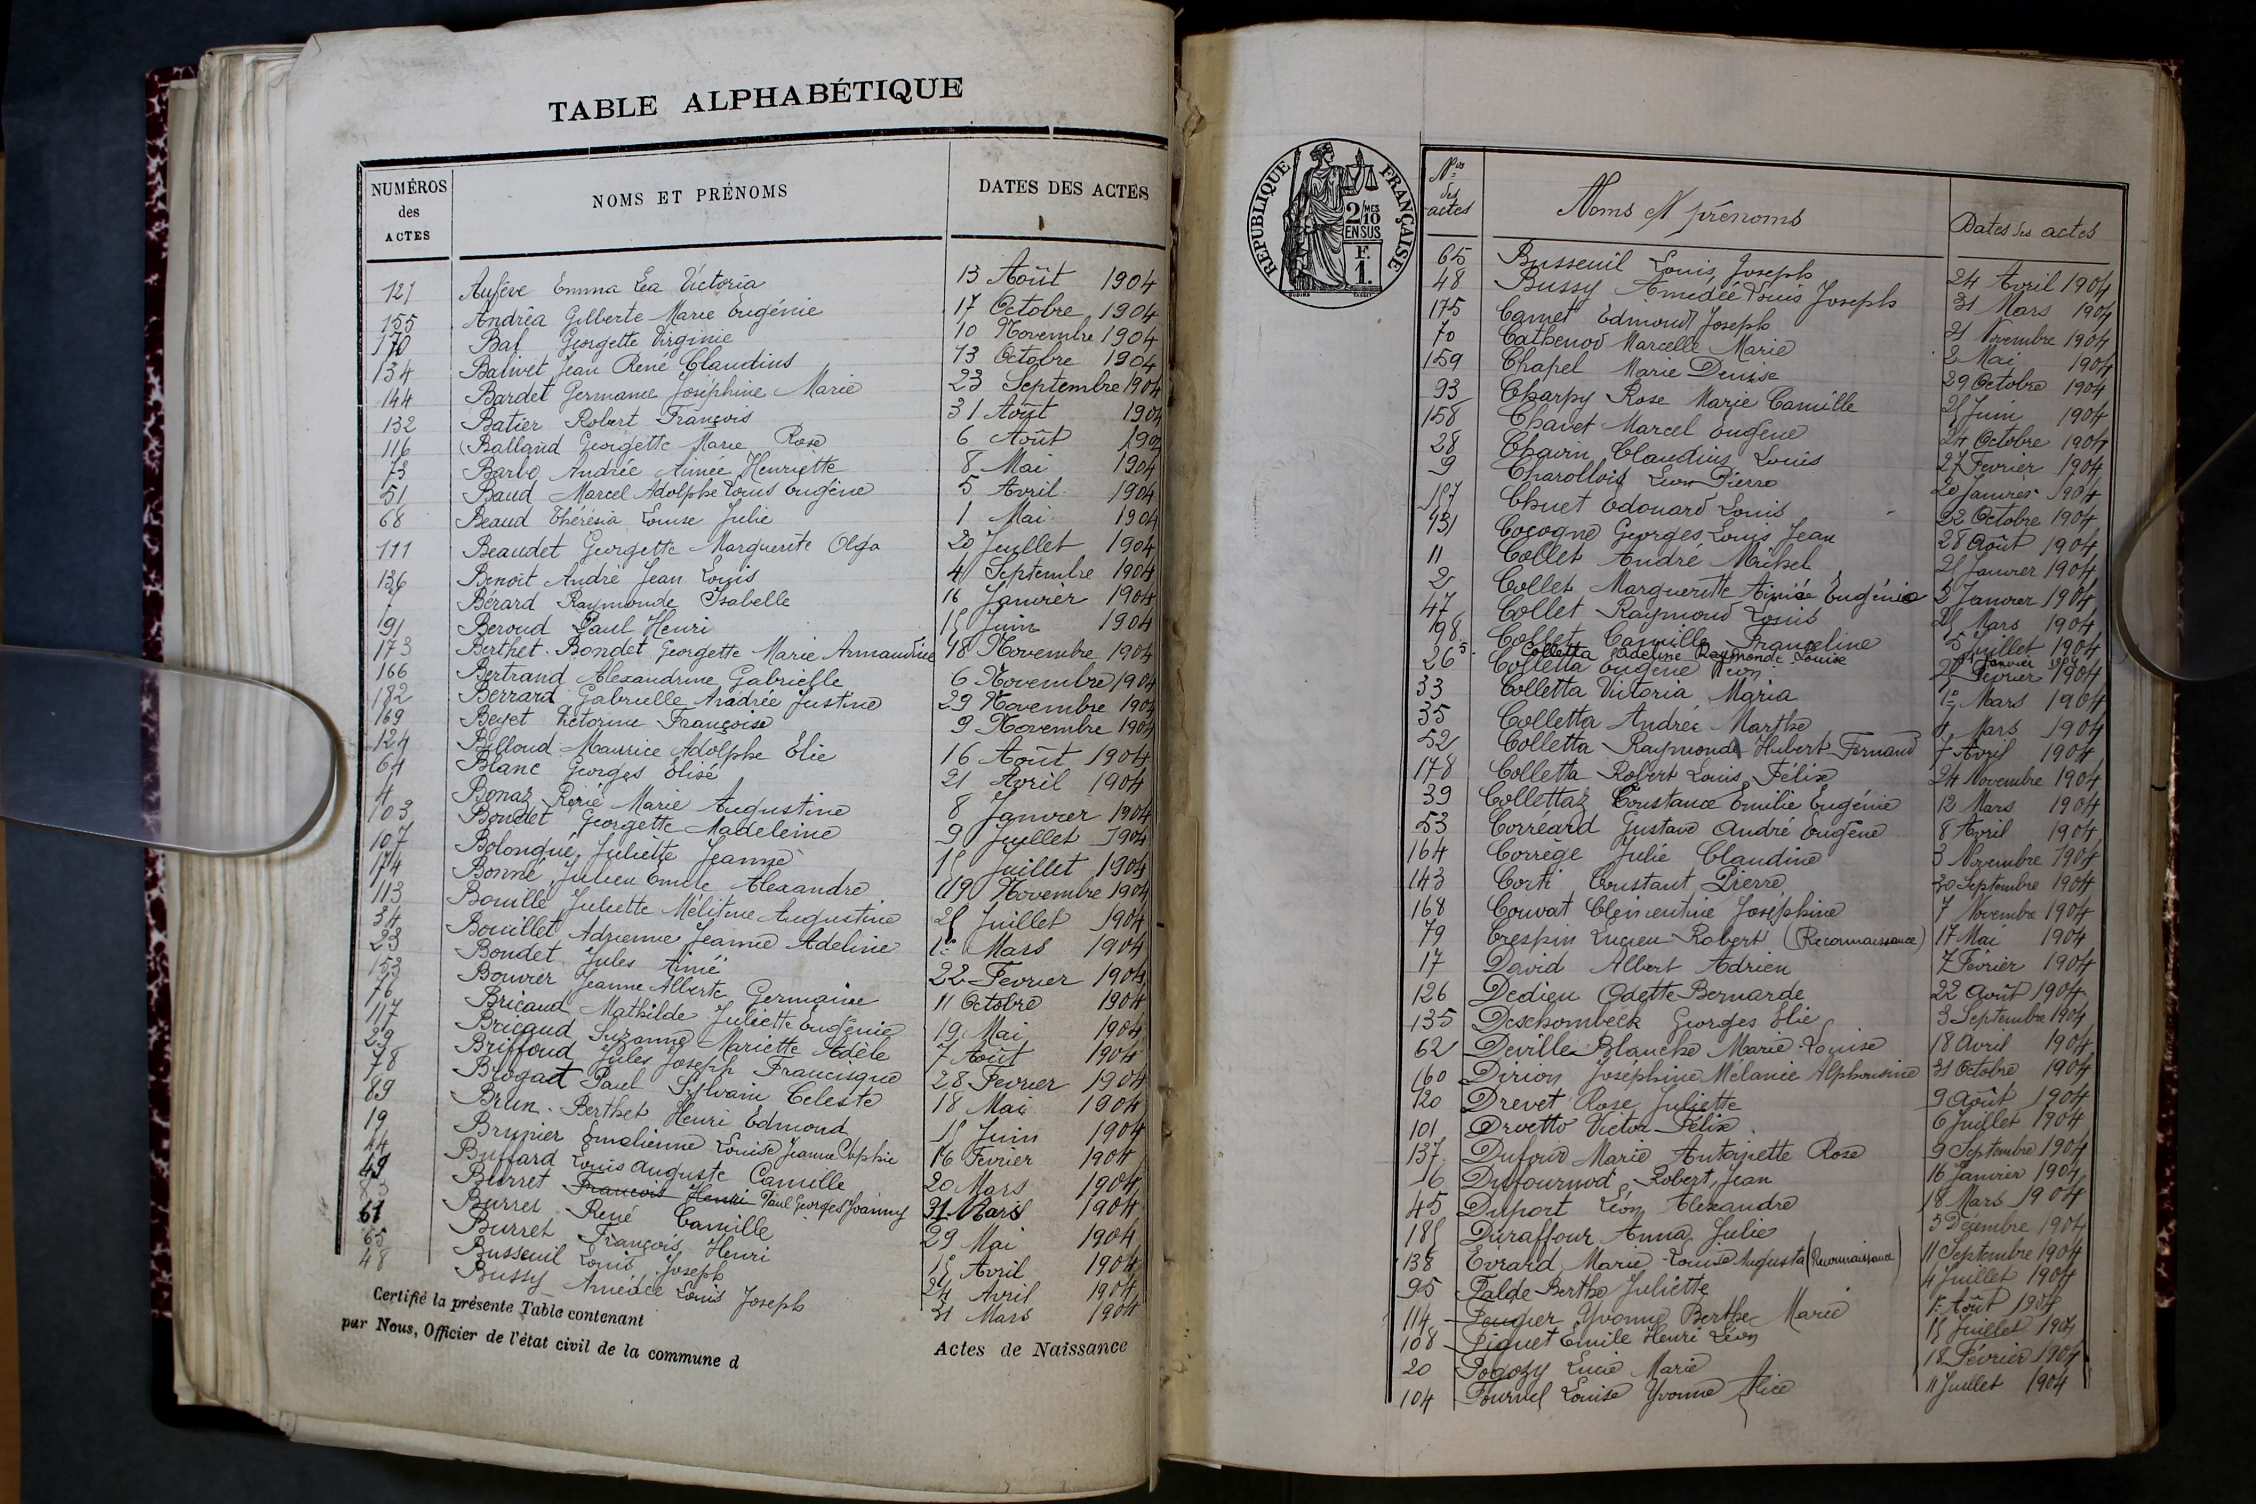 TABLE ALPHABÉTIQUE
NUMÉROS des ACTES NOMS ET PRÉNOMS DATES DES ACTES
121 Emma Léa Victoria 13 Août 1904
155 Andréa Gilberte Marie Eugénie 17 Octobre 1904
170 Bal Georgette Virginie 10 Novembre 1904
134 Balivet Jean René Claudius 13 Octobre 1904
144 Bardet Germaine Joséphine Marie 23 Septembre 1904
132 Batier Robert François 31 Août 1904
116 Balland Georgette Marie Rose 6 Août 190
73 Barbe Andrée Aimée Henriette 8 Mai 1904
51 Baud Marcel Adolphe Louis Eugène 5 Avril 1904
68 Beaud Thérésia Louise Julie 1 Mai 1904
111 Beaudet Georgette Marguerite Olga 20 Juillet 1904
136 Benoit André Jean Louis 4 Septembre 1904
Bérard Raymonde Isabelle 16 Janvier 1904
91 Beroud Paul Henri 15 Juin 1904
173 Berthet-Bondet Georgette Marie Armandine 18 Novembre 1904
166 Bertrand Alexandrine Gabrielle 6 Novembre 1904
182 Berrard Gabrielle Andrée Justine 29 Novembre 1904
169 Beyet Victorine Françoise 9 Novembre 1904
124 Billoud Maurice Adolphe Elie 16 Août 1904
64 Blanc Georges Elisé 21 Avril 1904
4 Bonaz René Marie Augustine 8 Janvier 1904
103 Bondet Georgette Madeleine 9 Juillet 1904
107 Bolongué Juliette Jeanne 15 Juillet 1904
174 Bonne Julien Emile Alexandre 19 Novembre 1904
113 Bouille Juliette Mélitine Augustine 25 Juillet 1904
34 Bouillet Adrienne Jeanne Adeline 1er Mars 1904
23 Boudet Jules Aimé 22 Fevrier 1904
153 Bouvier Jeanne Alberte Germaine 11 Octobre 1904
76 Bricaud Mathilde Juliette Eugénie 19 Mai 1904
117 Bricaud Suzanne Mariette Adèle 7 Août 1904
29 Briffoud Jules Joseph Francisque 28 Fevrier 1904
78 Brogat Paul Sylvain Celeste 18 Mai 1904
89 Brun-Berthet Henri Edmond 15 Juin 1904
19 Brunier Emelienne Louise Jeanne Sophie 16 Fevrier 1904
44 Buffard Louis Auguste Camille 20 Mars 1904
49 Burret François Henri Paul Georges Joanny 31 Mars 1904
Burret René Camille 29 Mai 1904
61 Burret François Henri 15 Avril 1904
65 Busseuil Louis Joseph 24 Avril 1904
48 Bussy Amédée Louis Joseph 31 Mars 1904
Certifié la présente Table contenant Actes de Naissance
par Nous, Officier de l'état civil de la commune d
REPUBLIQUE FRANÇAISE
2/10MES EN SUS
F. 1.
Nos des actes Noms et prénoms Dates des actes
65 Busseuil Louis Joseph 24 Avril 1904
48 Bussy Amedée Louis Joseph 31 Mars 1904
175 Camet Edmond Joseph 21 Novembre 1904
70 Cathenod Marcelle Marie 2 Mai 1904
159 Chapel Marie Denise 29 Octobre 1904
93 Charpy Rose Marie Camille 25 Juin 1904
158 Chavet Marcel Eugène 24 Octobre 1904
28 Chavin Claudius Louis 27 Fevrier 1904
9 Charollois Léon Pierre 20 Janvier 1904
157 Chuet Edouard Louis 22 Octobre 1904
131 Cocogne Georges Louis Jean 28 Août 1904
11 Collet André Michel 25 Janvier 1904
2 Collet Marguerite Aimée Eugénie 5 Janvier 1904
47 Collet Raymond Louis 25 Mars 1904
98 Collet Camille Franceline 5 Juillet 1904
Colletta Adeline Raymonde Louise 31 Janvier 1904
26 Colletta Eugène Léon 25 Fevrier 1904
33 Colletta Victoria Maria 1er Mars 1904
35 Colletta Andrée Marthe 4 Mars 1904
52 Colletta Raymond Hubert Fernand 7 Avril 1904
178 Colletta Robert Louis Félix 24 Novembre 1904
39 Collettaz Constance Emilie Eugénie 12 Mars 1904
53 Corréard Gustave André Eugène 8 Avril 1904
164 Corrège Julie Claudine 3 Novembre 1904
143 Corti Constant Pierre 20 Septembre 1904
168 Couvat Clémentine Joséphine 7 Novembre 1904
79 Crespin Lucien Robert (Reconnaissance) 17 Mai 1904
17 David Albert Adrien 7 Février 1904
126 Dedieu Odette Bernarde 22 Août 1904
135 Deschombeck Georges Elie 3 Septembre 1904
62 Deville Blanche Marie-Louise 18 Avril 1904
160 Dirion Joséphine Melanie Alphonsine 31 Octobre 1904
120 Drevet Rose Juliette 9 Août 1904
101 Drvetto Victor Félix 6 Juillet 1904
137 Dufour Marie Antoinette Rose 9 Septembre 1904
16 Dufournod Robert Jean 16 Janvier 1904
45 Duport Léon Alexandre 18 Mars 1904
185 Duraffour Anna Julie 5 Décembre 1904
138 Evrard Marie-Louise Augusta (Reconnaissance) 11 Septembre 1904
95 Falde Berthe Juliette 4 Juillet 1904
114 Feugier Yvonne Berthe Marie 1er Août 1904
108 Piquet Emile Henri Léon 15 Juillet 1904
20 Fogozy Lucie Marie 18 Février 1904
104 Fournel Louise Yvonne Alice 11 Juillet 1904